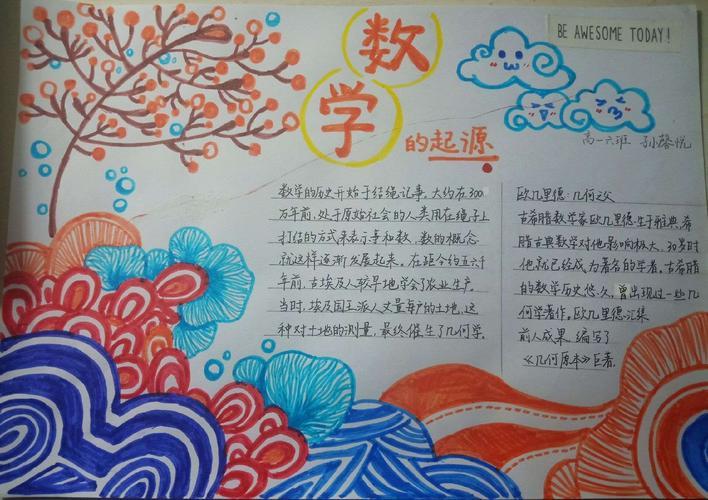 BE AWESOME TODAY!
数学
的起源
高一六班 孙馨悦
数学的历史开始于结绳记事。大约在300
万年前，处于原始社会的人类用在绳子上
打结的方式来表示事和数，数的概念
就这样逐渐发展起来。在距今约五六千
年前，古埃及人较早地学会了农业生产。
当时，埃及国王派人丈量每户的土地，这
种对土地的测量，最终催生了几何学。
欧几里德：几何之父
古希腊数学家欧几里德生于雅典，希
腊古典数学对他影响极大，30岁时
他就已经成为著名的学者。古希腊
的数学历史悠久，曾出现过一些几
何学著作。欧几里德汇集
前人成果，编写了
《几何原本》巨著。